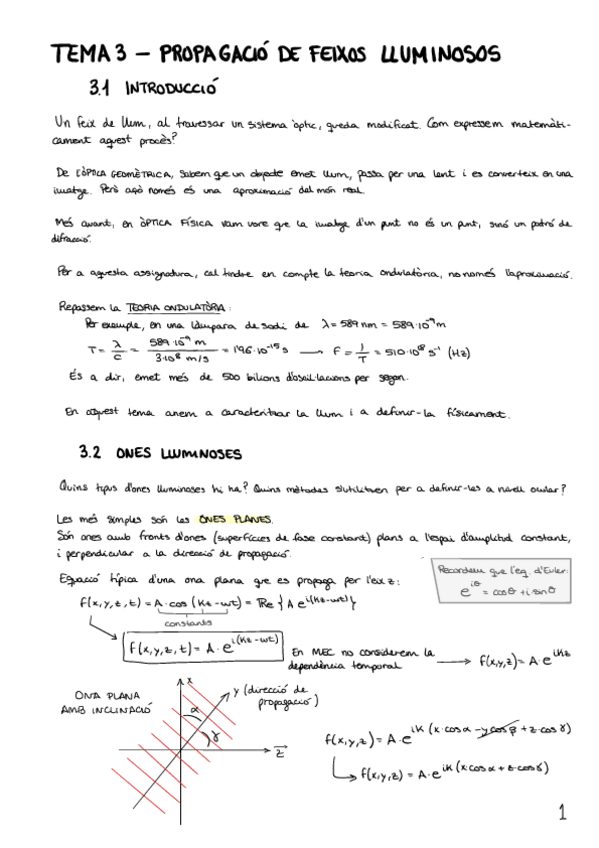 TEMA 3 – PROPAGACIÓ DE FEIXOS LLUMINOSOS
3.1 INTRODUCCIÓ
Un feix de llum, al travessar un sistema òptic, queda modificat. Com expressem matemàti-
cament aquest procés?
De l'ÒPTICA GEOMÈTRICA, sabem que un objecte emet llum, passa per una lent i es converteix en una
imatge. Però açò només és una aproximació del món real.
Més avant, en ÒPTICA FÍSICA vam vore que la imatge d'un punt no és un punt, sinó un patró de
difracció.
Per a aquesta assignatura, cal tindre en compte la teoria ondulatòria, no només l'aproximació.
Repassem la TEORIA ONDULATÒRIA:
Per exemple, en una làmpara de sodi de λ = 589 nm = 589·10⁻⁹ m
T = λ/c = 589·10⁻⁹ m / 3·10⁸ m/s = 1'96·10⁻¹⁵ s → F = 1/T = 510·10¹² s⁻¹ (Hz)
És a dir, emet més de 500 bilions d'oscil·lacions per segon.
En aquest tema anem a caracteritzar la llum i a definir-la físicament.
3.2 ONES LLUMINOSES
Quins tipus d'ones lluminoses hi ha? Quins mètodes s'utilitzen per a definir-les a nivell ocular?
Les més simples són les ONES PLANES.
Són ones amb fronts d'ones (superfícies de fase constant) plans a l'espai d'amplitud constant,
i perpendicular a la direcció de propagació.
Recordem que l'eq. d'Euler:
e^{iθ} = cosθ + i·sinθ
Equació típica d'una ona plana que es propaga per l'eix z:
f(x,y,z,t) = A·cos(Kz-wt) = Re{A e^{i(Kz-wt)}}
constants
f(x,y,z,t) = A·e^{i(Kz-wt)}
En MEC no considerem la
dependència temporal → f(x,y,z) = A·e^{iKz}
ONA PLANA
AMB INCLINACIÓ
x
y (direcció de
propagació)
α
γ
z
f(x,y,z) = A·e^{iK(x·cosα - y·cosβ + z·cosγ)}
f(x,y,z) = A·e^{iK(x·cosα + z·cosγ)}
1